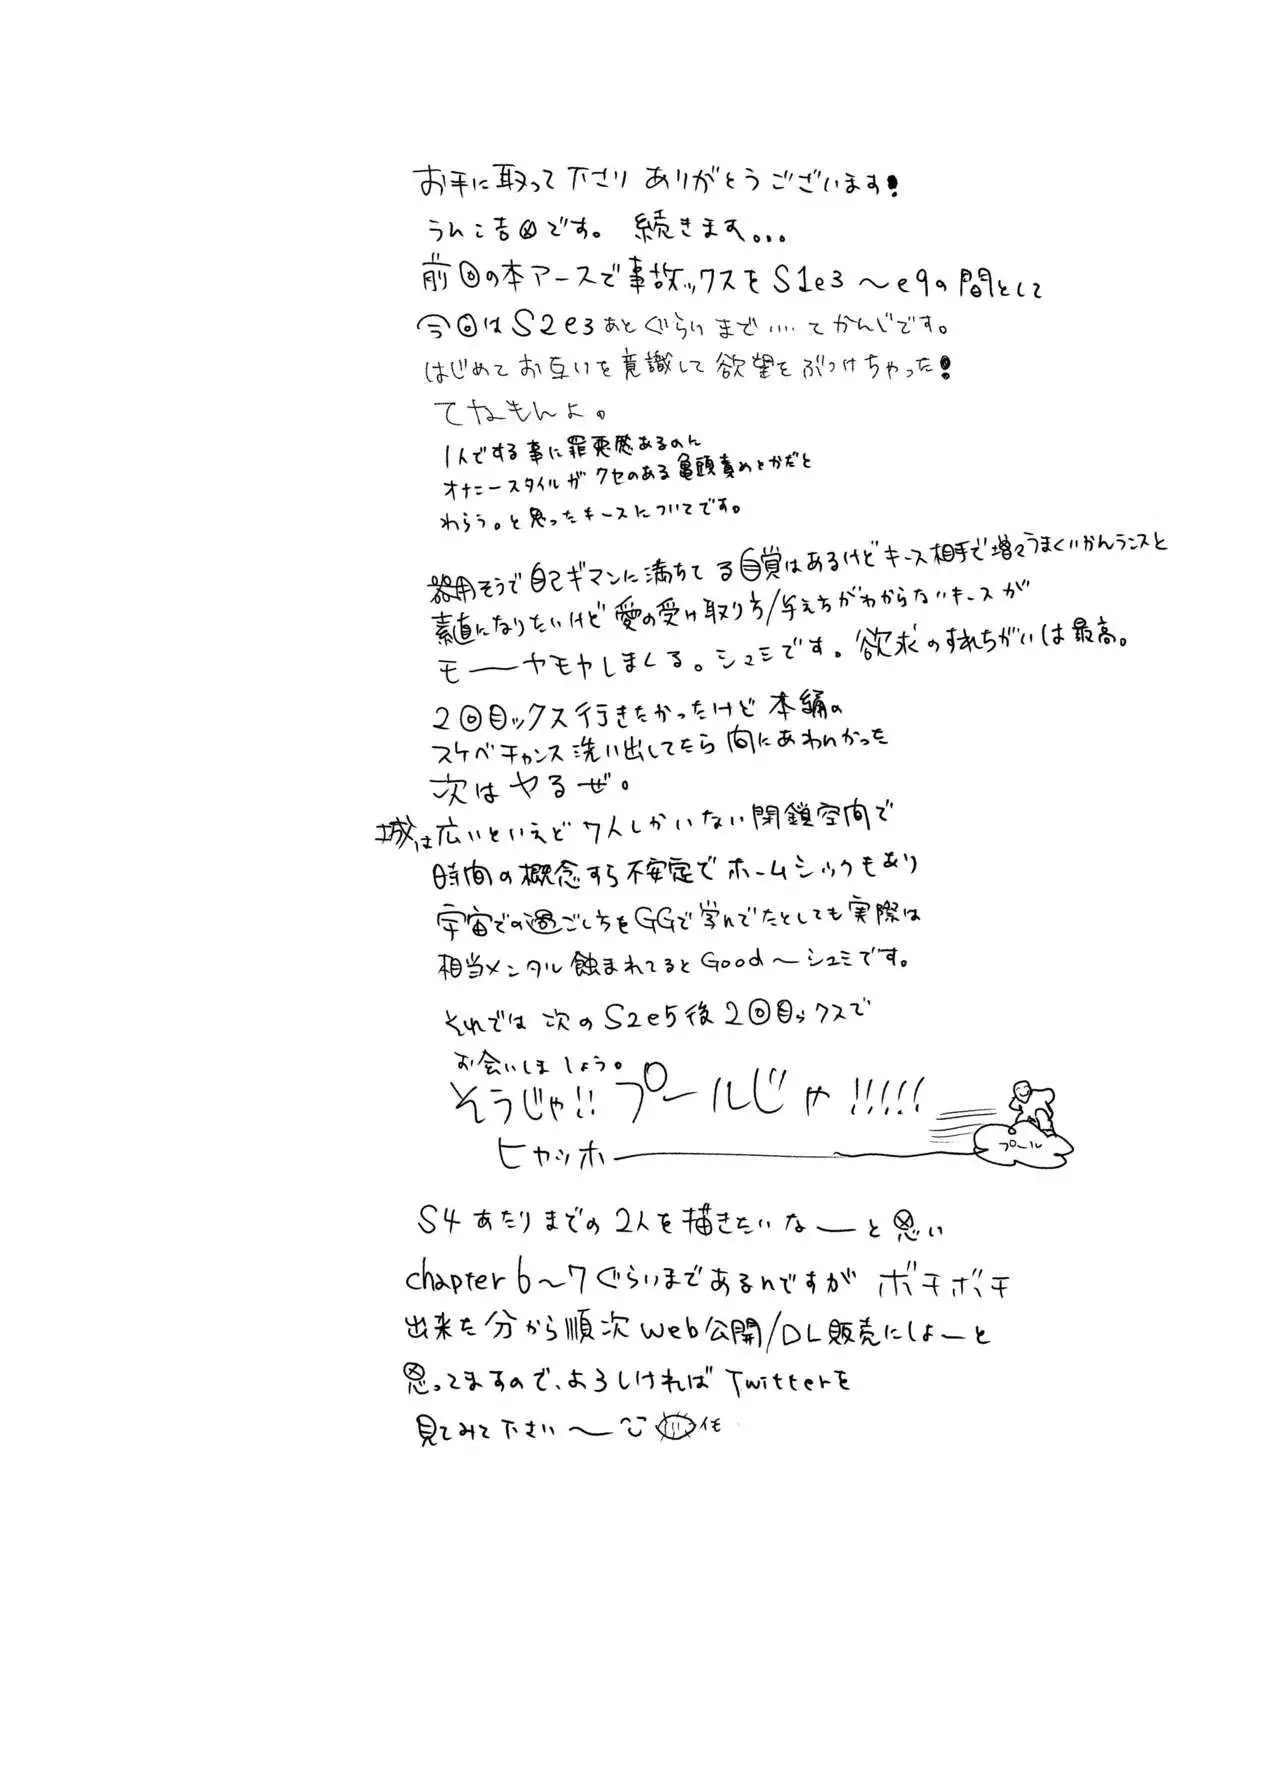 お手に取って下さり ありがとうございます!
うんこ吉田です。 続きます...
前回の本アースで事故ックスを S1e3 〜e9の間として
今回は S2e3 あとぐらいまで.... てかんじです。
はじめてお互いを意識して欲望をぶつけちゃった!
てなもんよ。
1人でする事に罪悪感あるのん
オナニースタイルが クセのある亀頭責めとかだと
わらう。と思ったキースについてです。
器用そうで自己ギマンに満ちてる自覚はあるけどキース相手で増々うまくいかんランスと
素直になりたいけど愛の受け取り方/与え方がわからないキースが
モーーヤモヤしまくる。シュミです。欲求のすれちがいは最高。
2回目ックス行きたかったけど 本編の
スケベチャンス洗い出してたら間にあわんかった
次はヤるぜ。
城は広いといえど 7人しかいない閉鎖空間で
時間の概念すら不安定で ホームシックもあり
宇宙での過ごし方をGGで学んでたとしても実際は
相当メンタル蝕まれてるとGood〜シュミです。
それでは 次のS2e5後2回目ックスで
お会いしましょう。
そうじゃ!! プールじゃ!!!!!
プール
ヒャッホー
S4あたりまでの2人を描きたいなーと思い
chapter6〜7ぐらいまであるんですが ボチボチ
出来た分から順次web公開/DL販売にしよーと
思ってますので、よろしければTwitterを
見てみて下さい〜